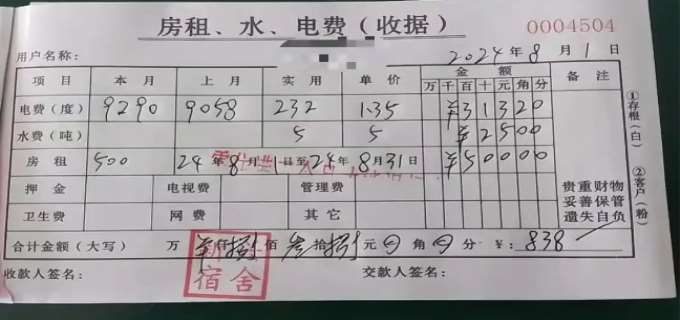 房租、水、电费（收据） 0004504
用户名称： 2024年8月1日
项目 本月 上月 实用 单价 金额 备注
万 千 百 十 元 角 分
电费（度） 9290 9058 232 1.35 ¥ 3 1 3 2 0
水费（吨） 5 5 ¥ 2 5 0 0
房租 500 24年8月1日至24年8月31日 ¥ 5 0 0 0 0
押金 电视费 管理费 贵重财物
妥善保管
卫生费 网费 其它 遗失自负
合计金额（大写） 万 仟 捌佰 叁拾 捌元 角 分 ¥：838
收款人签名： 交款人签名：
宿舍
①存根（白） ②客户（粉）